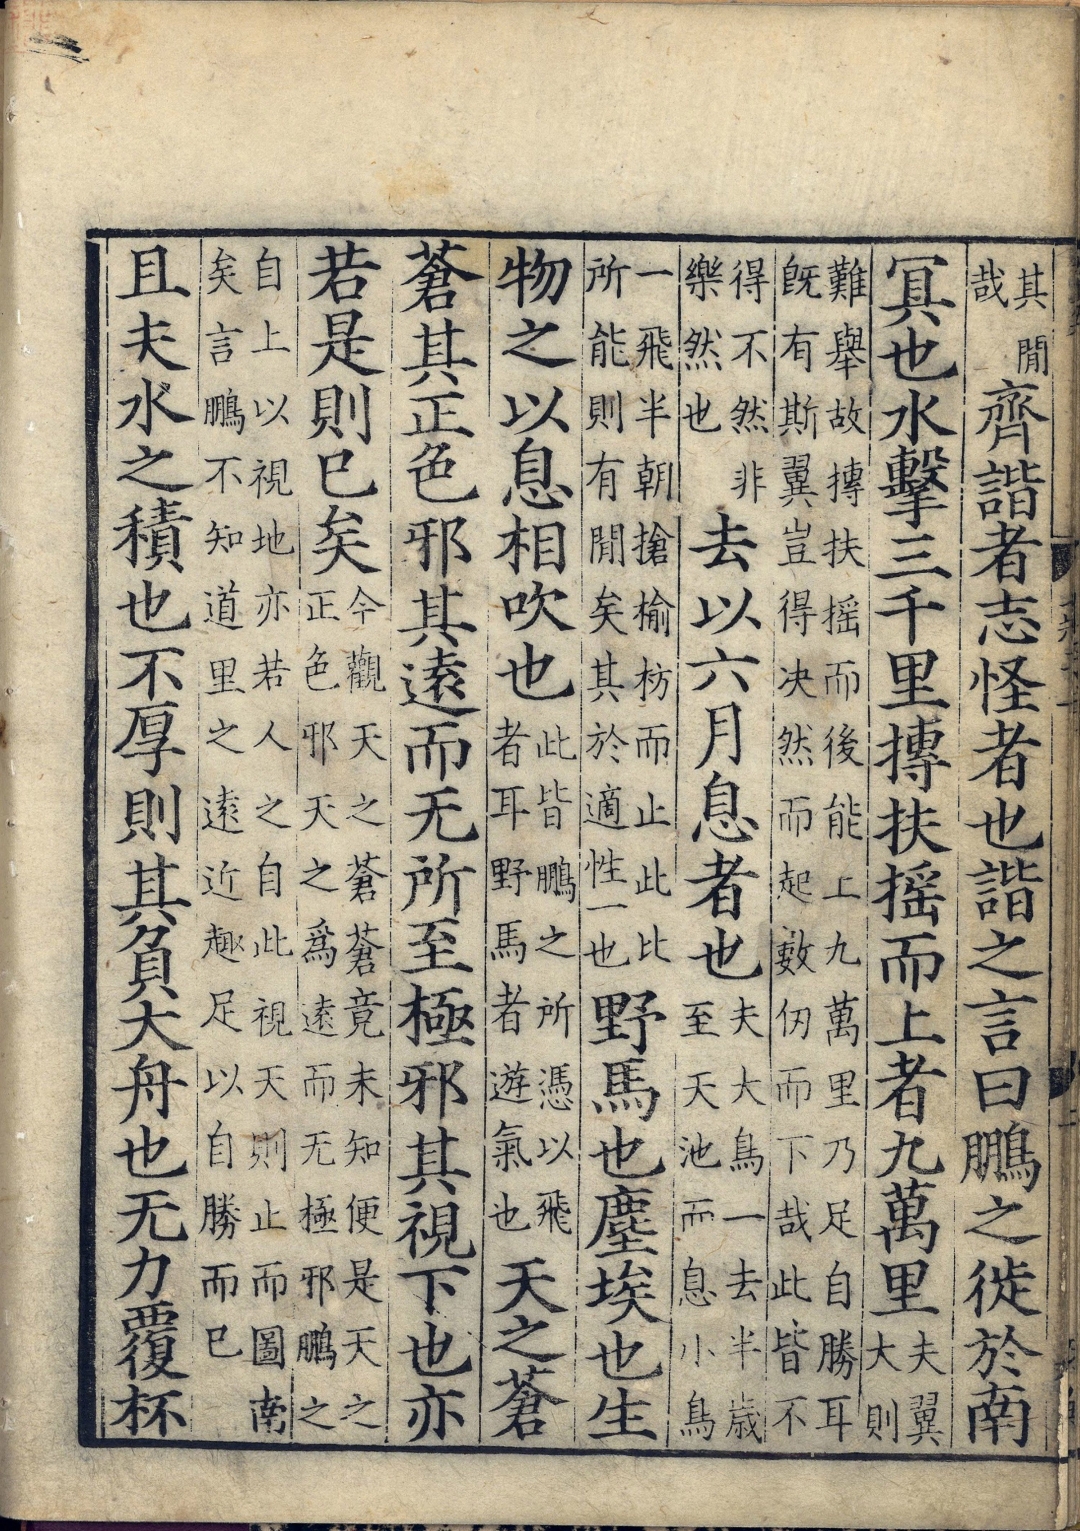 其閒哉齊諧者志怪者也諧之言曰鵬之徙於南
冥也水擊三千里摶扶摇而上者九萬里夫翼大則
難舉故摶扶摇而後能上九萬里乃足自勝耳既有斯翼豈得决然而起數仞而下哉此皆不
得不然非樂然也去以六月息者也夫大鳥一去半歳至天池而息小鳥
一飛半朝搶榆枋而止此比所能則有閒矣其於適性一也野馬也塵埃也生
物之以息相吹也此皆鵬之所憑以飛者耳野馬者遊氣也天之蒼
蒼其正色邪其遠而无所至極邪其視下也亦
若是則巳矣今觀天之蒼蒼竟未知便是天之正色邪天之爲遠而无極邪鵬之
自上以視地亦若人之自此視天則止而圖南矣言鵬不知道里之遠近趣足以自勝而巳
且夫水之積也不厚則其負大舟也无力覆杯